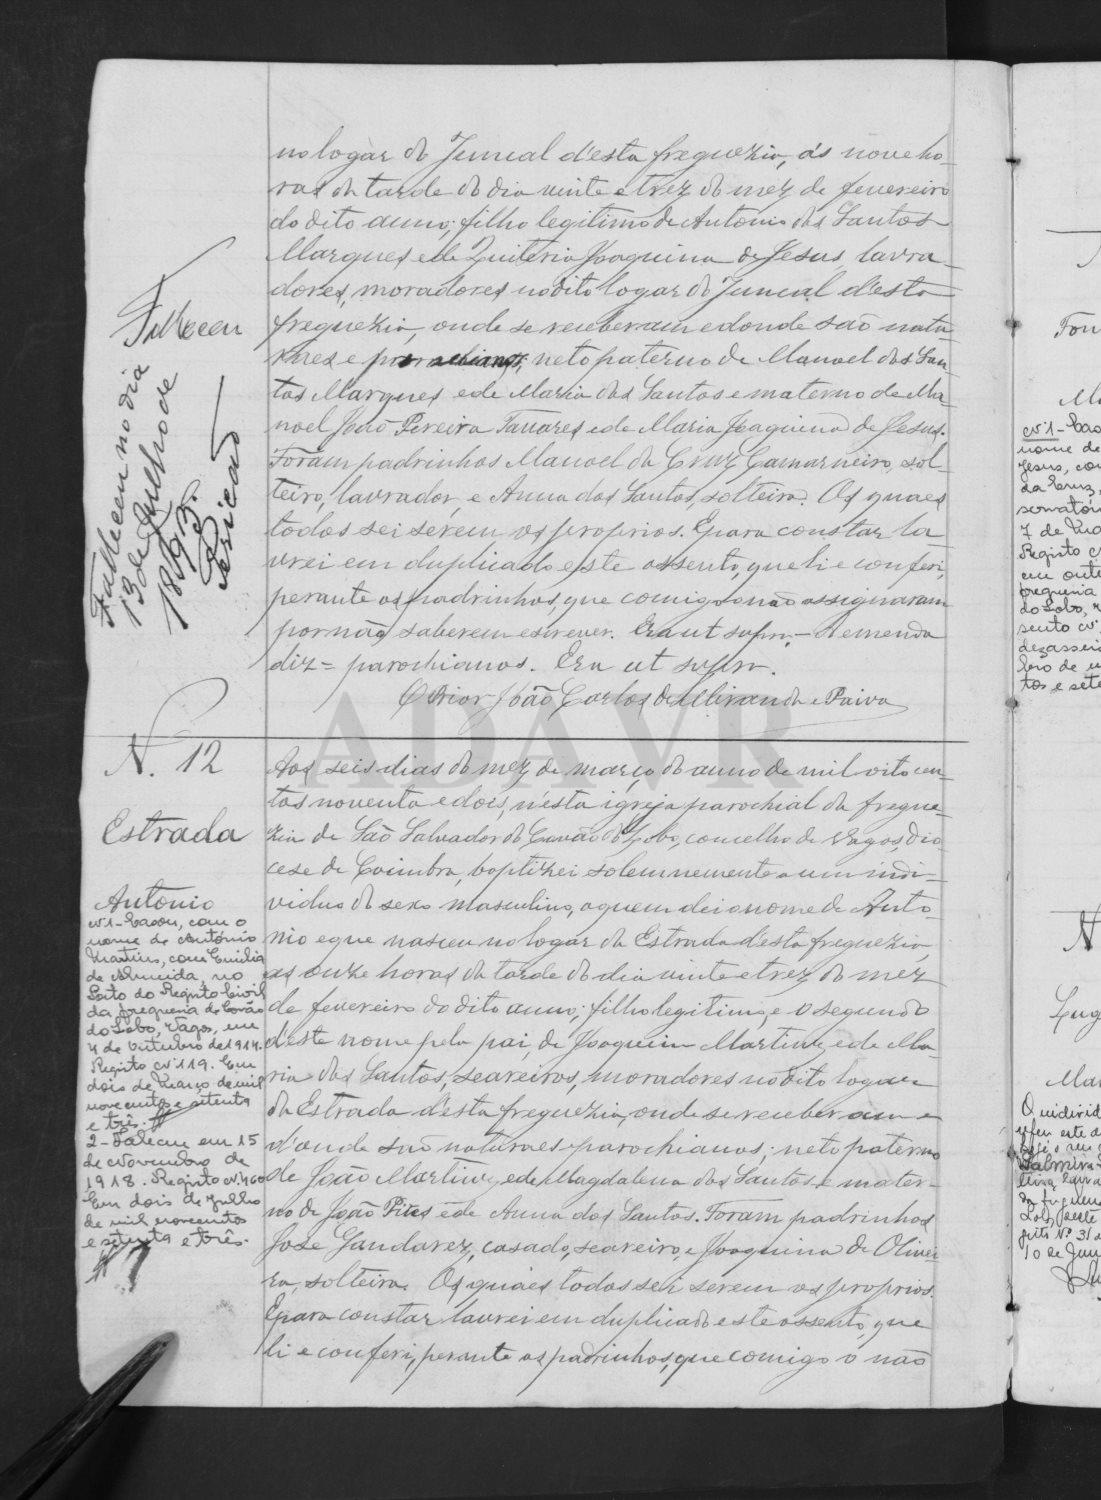 no logar do Juncal d'esta freguezia, ás nove ho-
ras da tarde do dia vinte e trez do mez de fevereiro
do dito anno; filho legitimo de Antonio dos Santos
Marques e de Quiteria Joaquina de Jesus, lavra-
dores, moradores no dito logar do Juncal d'esta
freguezia, onde se receberam e donde são natu-
raes e parochianos; neto paterno de Manoel dos San-
tos Marques e de Maria dos Santos e materno de Ma-
noel João Pereira Tavares e de Maria Joaquina de Jesus.
Foram padrinhos Manoel da Cruz Camarneiro, sol-
teiro, lavrador, e Anna dos Santos, solteira. Os quaes
todos sei serem os proprios. E para constar la-
vrei em duplicado este assento, que li e conferi,
perante os padrinhos, que comigo o não assignaram
por não saberem escrever. Era ut supra. - A emenda
diz = parochianos. Era ut supra.
O Prior João Carlos de Miranda e Paiva
Falleceu
Falleceu no dia
13 de Julho de
1893.
Prior
N. 12
Estrada
Antonio
Nº 1 - Casou, com o
nome de António
Martins, com Emilia
de Almeida, no
Posto do Registo Civil
da freguesia de Covão
do Lobo, Vagos, em
4 de Outubro de 1914.
Registo nº 119. Em
dois de Março de mil
novecentos e setenta
e três.
2 - Faleceu em 15
de Novembro de
1918. Registo nº 460
Em dois de Julho
de mil novecentos
e setenta e três.
Aos seis dias do mez de março do anno de mil oitocen-
tos noventa e dois, n'esta igreja parochial da fregue-
zia de São Salvador do Covão do Lobo, concelho de Vagos, dio-
cese de Coimbra, baptizei solemnemente a um indi-
viduo do sexo masculino, a quem dei o nome de Anto-
nio e que nasceu no logar da Estrada d'esta freguezia,
as onze horas da tarde do dia vinte e trez do mez
de fevereiro do dito anno; filho legitimo, e o segundo
d'este nome pelo pai, de Joaquim Martins e de Ma-
ria dos Santos, seareiros, moradores no dito logar
da Estrada d'esta freguezia, onde se receberam e
d'onde são naturaes e parochianos; neto paterno
de João Martins e de Magdalena dos Santos e mater-
no de João Pires e de Anna dos Santos. Foram padrinhos
José Gandarez, casado, seareiro, e Joaquina de Olivei-
ra, solteira. Os quaes todos sei serem os proprios.
E para constar lavrei em duplicado este assento, que
li e conferi, perante os padrinhos, que comigo o não
ADAVR